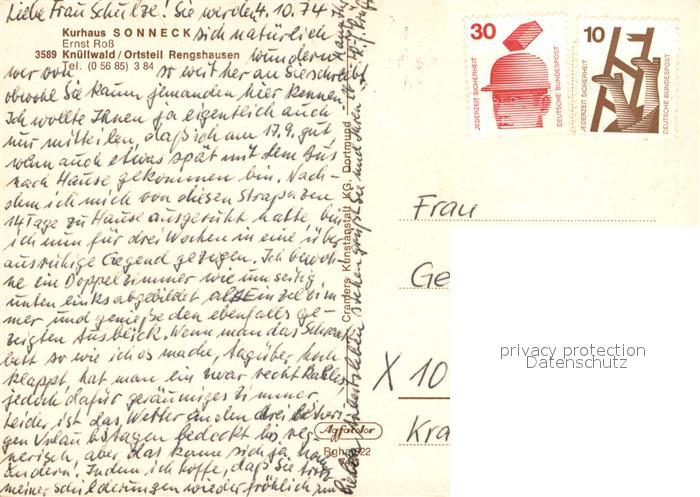 Liebe Frau Schulze! Sie werden 4.10.74
Kurhaus SONNECK sich natürlich
Ernst Roß
3589 Knüllwald/Ortsteil Rengshausen wundern
Tel. (0 56 85) 3 84
wer von so weit her an Sie schreibt
obwohl Sie kaum jemanden hier kennen.
Ich wollte Ihnen ja eigentlich auch
nur mitteilen, daß ich am 17.9. gut
wenn auch etwas spät mit dem Bus
nach Hause gekommen bin. Nach-
dem ich mich von diesen Strapazen
14 Tage zu Hause ausgeruht hatte bin
ich nun für drei Wochen in eine über-
aus ruhige Gegend gezogen. Ich bewoh-
ne ein Doppelzimmer wie umseitig
unten links abgebildet als Einzelzim-
mer und genieße den ebenfalls ge-
zeigten Ausblick. Wenn man das Schrank-
bett so wie ich es mache, tagsüber hoch-
klappt, hat man ein zwar recht kahles
jedoch dafür geräumiges Zimmer.
Leider ist das Wetter an den drei bisheri-
gen Urlaubstagen bedeckt bis reg-
nerisch, aber das kann sich ja noch
ändern! Indem ich hoffe, daß Sie trotz
meiner Schilderungen wieder fröhlich und
stehen grüßt Sie und Ihren
Cramers Kunstanstalt KG, Dortmund
Agfacolor
30
JEDERZEIT SICHERHEIT
DEUTSCHE BUNDESPOST
10
JEDERZEIT SICHERHEIT
DEUTSCHE BUNDESPOST
Frau
Ge
X 10
Kra
privacy protection
Datenschutz